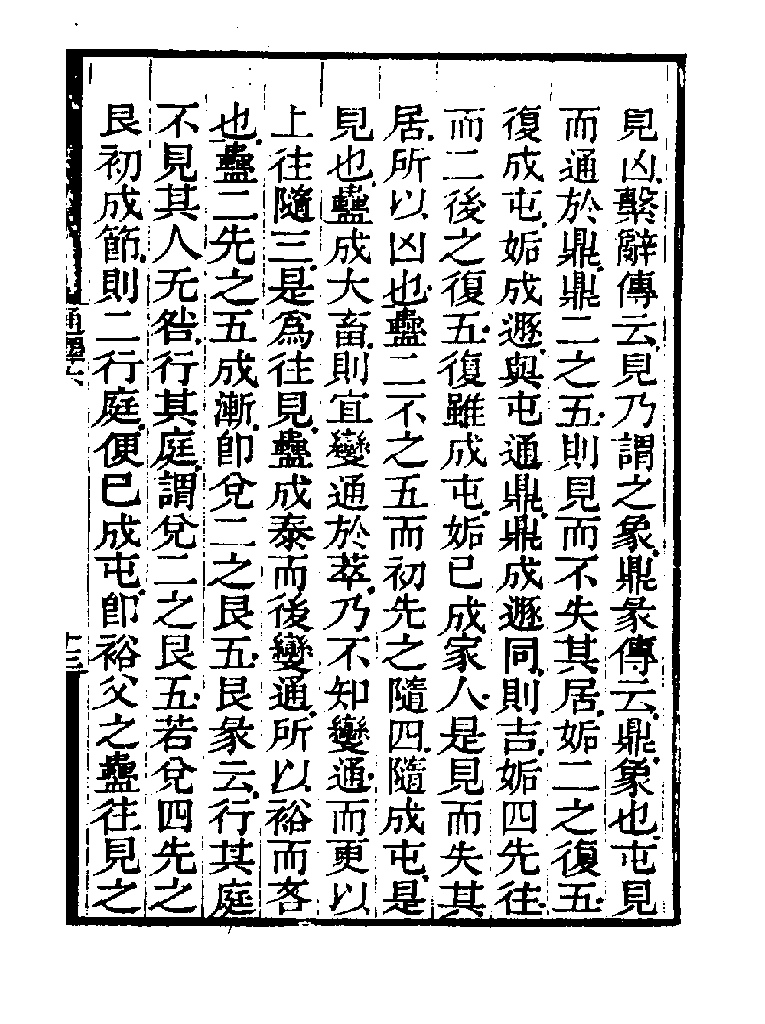 見凶繫辭傳云見乃謂之象鼎彖傳云鼎象也屯見
而通於鼎鼎二之五則見而不失其居姤二之復五
復成屯姤成遯與屯通鼎鼎成遯同則吉姤四先往
而二後之復五復雖成屯姤已成家人是見而失其
居所以凶也蠱二不之五而初先之隨四隨成屯是
見也蠱成大畜則宜變通於萃乃不知變通而更以
上往隨三是爲往見蠱成泰而後變通所以裕而吝
也蠱二先之五成漸卽兌二之艮五艮彖云行其庭
不見其人无咎行其庭謂兌二之艮五若兌四先之
艮初成節則二行庭便已成屯卽裕父之蠱往見之
通釋六
十三